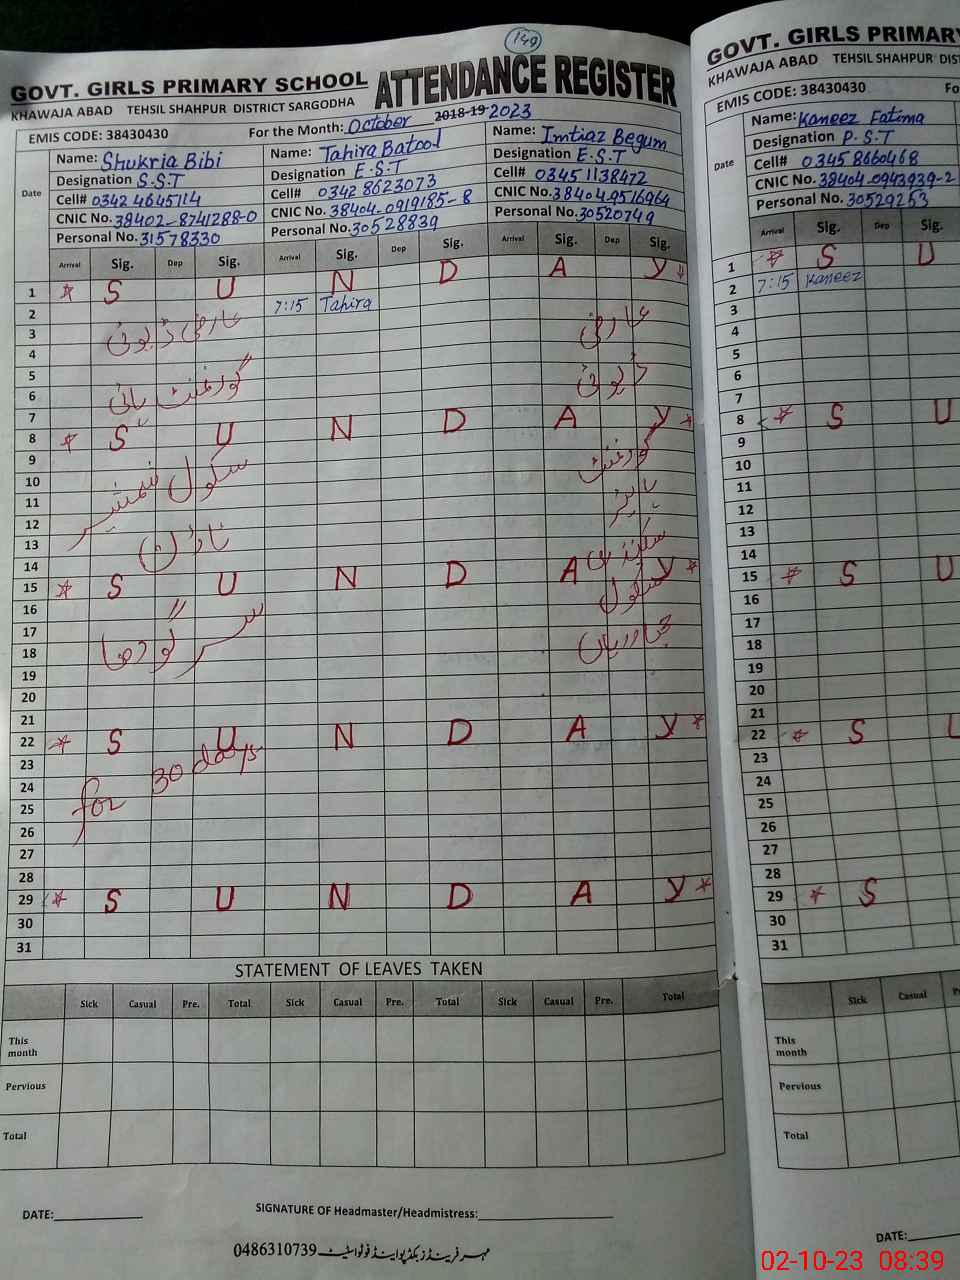 149
GOVT. GIRLS PRIMARY SCHOOL ATTENDANCE REGISTER
KHAWAJA ABAD TEHSIL SHAHPUR DISTRICT SARGODHA
EMIS CODE: 38430430 For the Month: October 2018-19 2023
Date
Name: Shukria Bibi
Designation S.S.T
Cell# 0342 4645114
CNIC No. 38402-8741288-0
Personal No. 31578330
Name: Tahira Batool
Designation E.S.T
Cell# 0342 8623073
CNIC No. 38404-0919185-8
Personal No. 30528839
Name: Imtiaz Begum
Designation E.S.T
Cell# 0345 1138472
CNIC No. 38404-9516964
Personal No. 30520749
Arrival Sig. Dep Sig. Arrival Sig. Dep Sig. Arrival Sig. Dep Sig.
1 * S U N D A Y *
2 7:15 Tahira
3 عارضی ڈیوٹی عارضی
4
5
6 گورنمنٹ ہائی ڈیوٹی
7
8 * S U N D A Y *
9
10 سکول گورنمنٹ
11
12
13
14
15 * S U N D A Y *
16 سکول
17
18 سرگودھا جہاوریاں
19
20
21
22 * S U N D A Y *
23
24 for 30 days
25
26
27
28
29 * S U N D A Y *
30
31
STATEMENT OF LEAVES TAKEN
Sick Casual Pre. Total Sick Casual Pre. Total Sick Casual Pre. Total
This month
Pervious
Total
DATE: SIGNATURE OF Headmaster/Headmistress:
مہر فرینڈز بکڈپو اینڈ فوٹو اسٹیٹ 0486310739
GOVT. GIRLS PRIMARY
KHAWAJA ABAD TEHSIL SHAHPUR DIST
EMIS CODE: 38430430 Fo
Date
Name: Kaneez Fatima
Designation P.S.T
Cell# 0345 8660468
CNIC No. 38404-0943939-2
Personal No. 30529253
Arrival Sig. Dep Sig.
1 * S U
2 7:15 Kaneez
3
4
5
6
7
8 * S U
9
10
11
12
13
14
15 * S U
16
17
18
19
20
21
22 * S
23
24
25
26
27
28
29 * S
30
31
Sick Casual
This month
Pervious
Total
DATE:
02-10-23 08:39